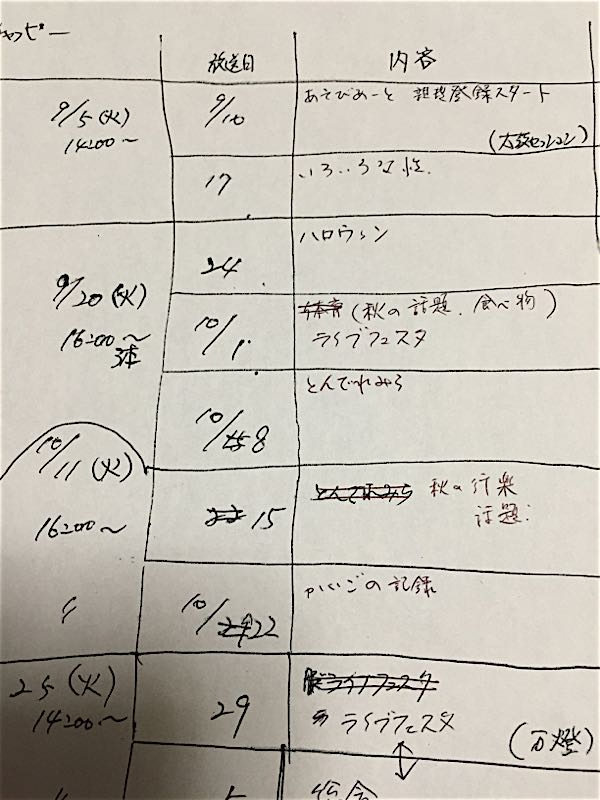 放送日 内容
9/5(火) 14:00〜
9/10 あそびあーと 誰誰登録スタート
(太鼓セッション)
17 いろいろな性.
24 ハロウィン
9/20(火) 16:00〜 3本
10/1. (秋の話題.食べ物)
ライブフェスタ
10/8 とんでれみら
10/11(火) 16:00〜
15 とんでれみら 秋の行楽
話題.
〃 10/22 かいごの記録
25(火) 14:00〜
29 ライブフェスタ
ライブフェスタ
(万燈)
総会